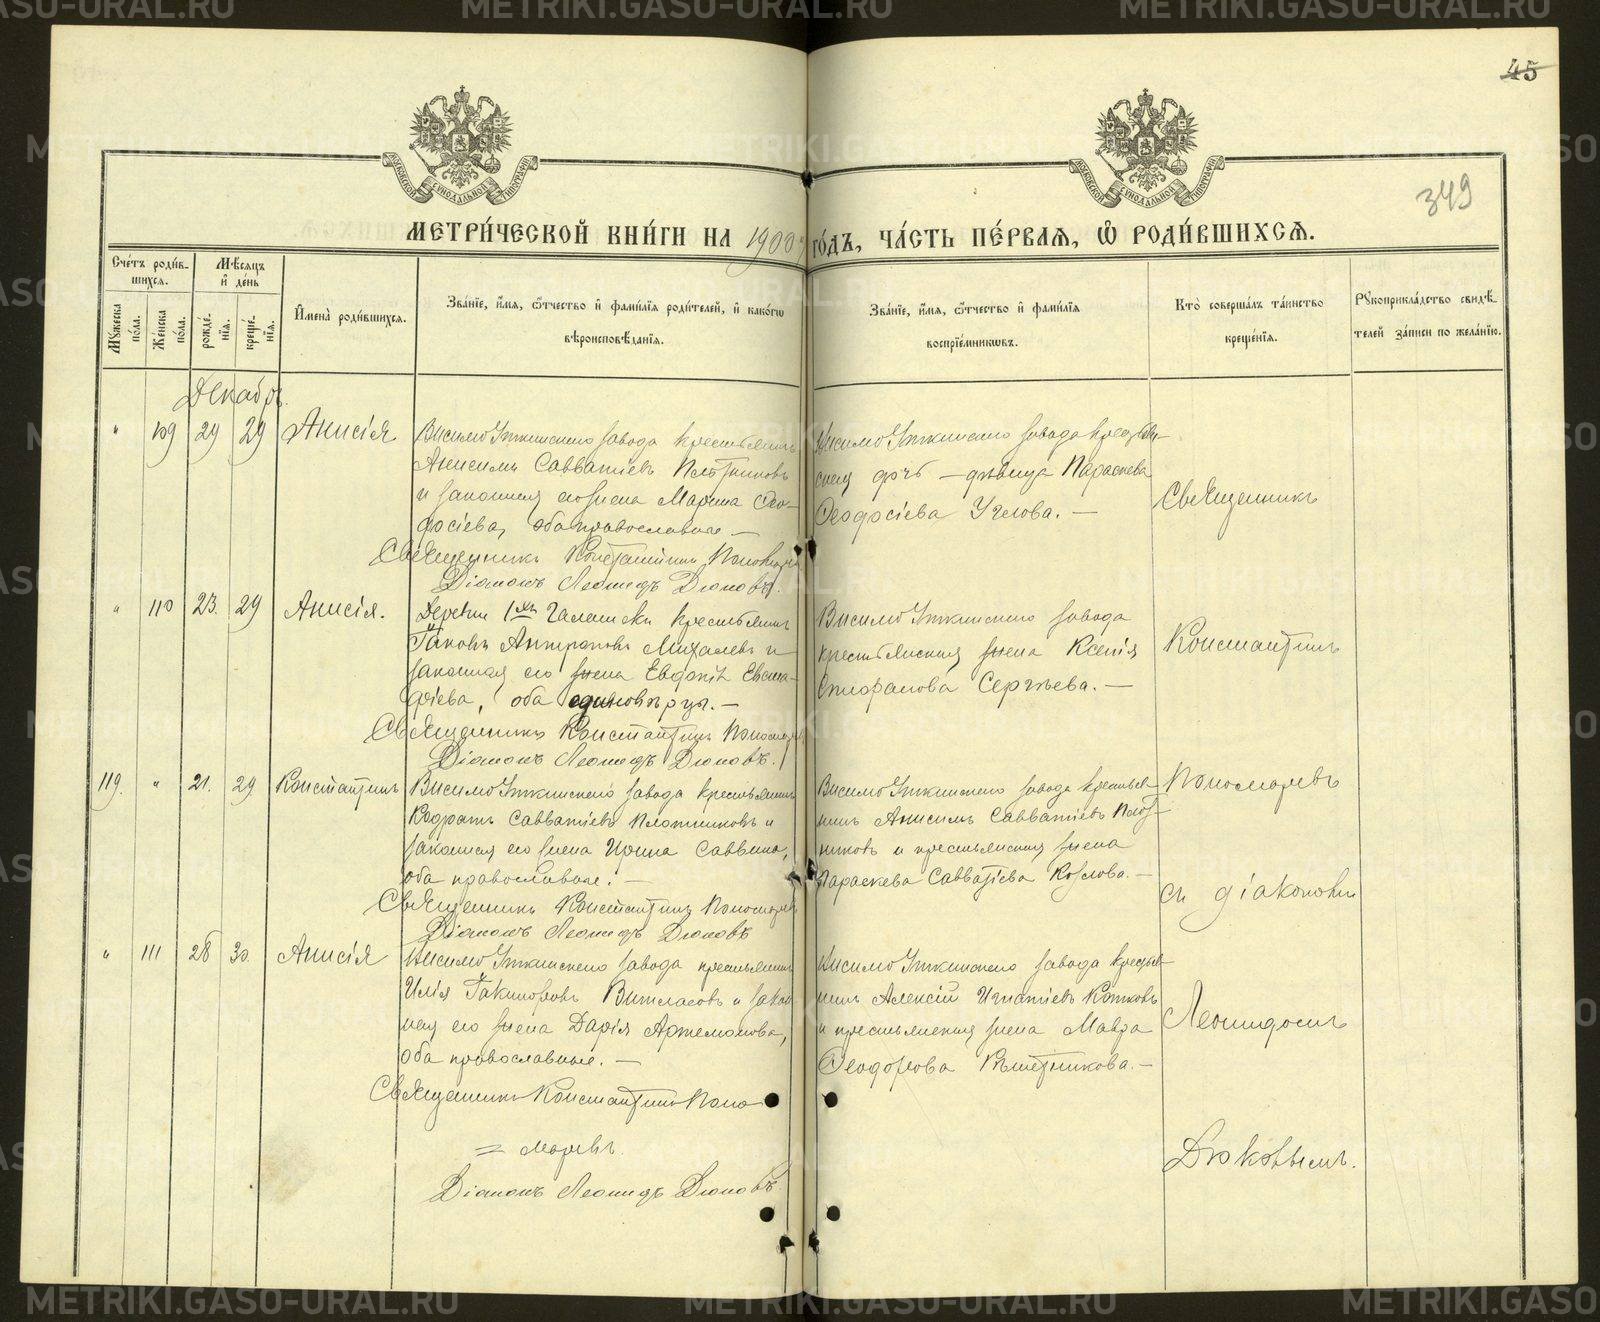 METRIKI.GASO-URAL.RU
45
349
МОСКОВСКОЙ СѴНОДАЛЬНОЙ ТИПОГРАФІИ
МОСКОВСКОЙ СѴНОДАЛЬНОЙ ТИПОГРАФІИ
МЕТРИ́ЧЕСКОЙ КНИ́ГИ НА 1900 ГО́ДЪ, ЧА́СТЬ ПЕ́РВАЯ, Ѡ҆ РОДИ́ВШИХСЯ.
Сче́тъ роди́в-
шихся.
Мѣ́сяцъ
и҆ де́нь
Мꙋ́жеска по́ла.
Же́нска по́ла.
рожде́-
нїя.
креще́-
нїя.
И҆мена̀ роди́вшихся.
Зва́нїе, и҆́мя, ѻ҆́тчество и҆ фами́лїя роди́телей, и҆ како́гѡ
вѣроисповѣ́данїя.
Зва́нїе, и҆́мя, ѻ҆́тчество и҆ фами́лїя
воспрїе́мниковъ.
Кто̀ соверша́лъ та́инство
креще́нїя.
Рꙋкоприкла́дство свидѣ́-
телей за́писи по жела́нїю.
Декабрь.
" 109 29 29 Анисія
Висимо Уткинскаго завода крестьянинъ
Анисимъ Савватіевъ Плотниковъ
и законная его жена Марина Ѳео-
досіева, оба православные. —
Священникъ Константинъ Пономаревъ
Діаконъ Леонидъ Дюковъ.
Висимо Уткинскаго завода крестьян-
ская дочь — дѣвица Параскева
Ѳеодосіева Углова. —
" 110 23. 29 Анисія.
Деревни 1хъ Галашки крестьянинъ
Михалевъ и
законная его жена Евдокія Евста-
фіева, оба единовѣрцы. —
Священникъ Константинъ Пономаревъ
Діаконъ Леонидъ Дюковъ.
Висимо Уткинскаго завода
крестьянская жена Ксенія
Сергѣева. —
119. " 21. 29 Константинъ
Висимо Уткинскаго завода крестьянинъ
Кодратъ Савватіевъ Плотниковъ и
законная его жена Ирина Саввина,
оба православные. —
Священникъ Константинъ Пономаревъ
Діаконъ Леонидъ Дюковъ
Висимо Уткинскаго завода крестья-
нинъ Анисимъ Савватіевъ Плот-
никовъ и крестьянская жена
Параскева Савватіева Козлова. —
" 111 28 30. Анисія
Висимо Уткинскаго завода крестьянинъ
Илія и закон-
ная его жена Дарія Артемонова,
оба православные. —
Священникъ Константинъ Поно
= маревъ.
Діаконъ Леонидъ Дюковъ.
Висимо Уткинскаго завода крестья-
нинъ Алексій Игнатіевъ Котковъ
и крестьянская жена Мавра
Ѳеодорова Рѣшетникова. —
Священникъ
Константинъ
Пономаревъ
съ діакономъ
Леонидомъ
Дюковымъ.